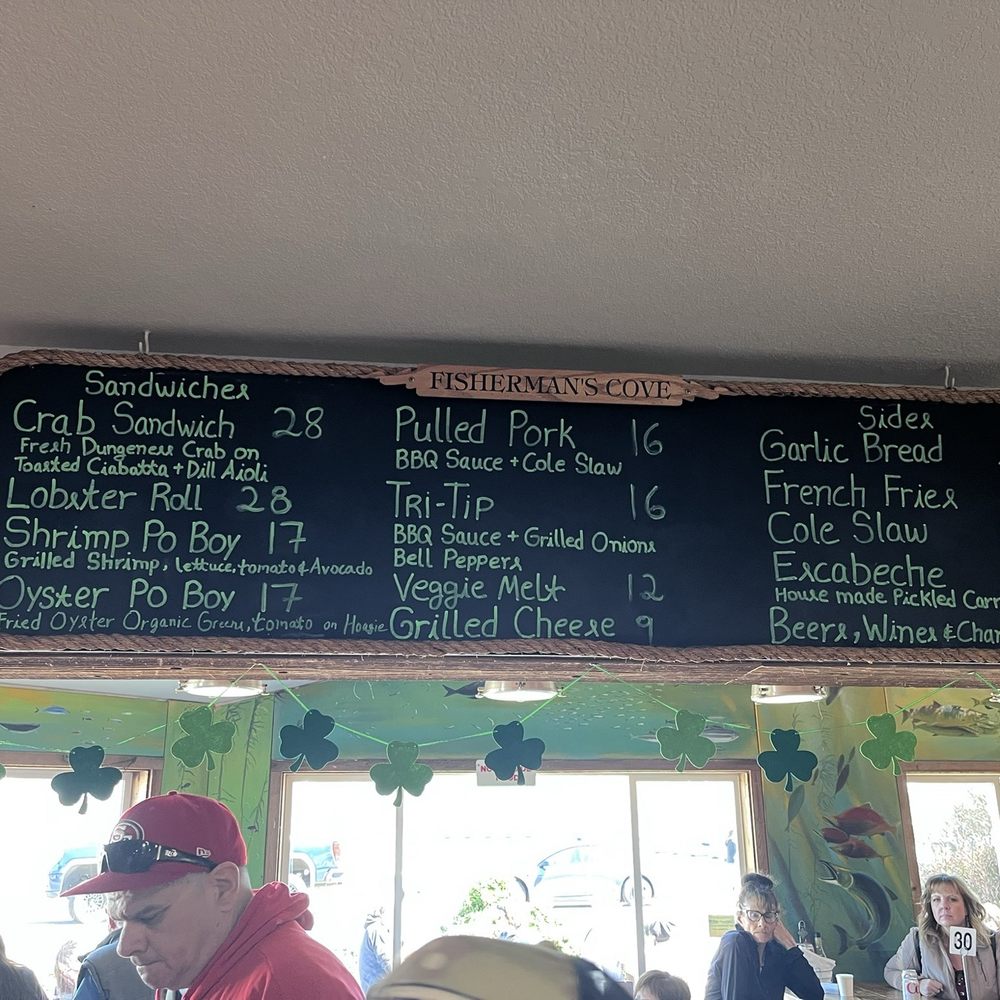 FISHERMAN'S COVE
Sandwiches
Crab Sandwich 28
Fresh Dungeness Crab on
Toasted Ciabatta + Dill Aioli
Lobster Roll 28
Shrimp Po Boy 17
Grilled Shrimp, lettuce, tomato & Avocado
Oyster Po Boy 17
Fried Oyster Organic Greens, tomato on Hoagie
Pulled Pork 16
BBQ Sauce + Cole Slaw
Tri-Tip 16
BBQ Sauce + Grilled Onions
Bell Peppers
Veggie Melt 12
Grilled Cheese 9
Sides
Garlic Bread
French Fries
Cole Slaw
Escabeche
House made Pickled Carr
Beers, Wines & Cham
30